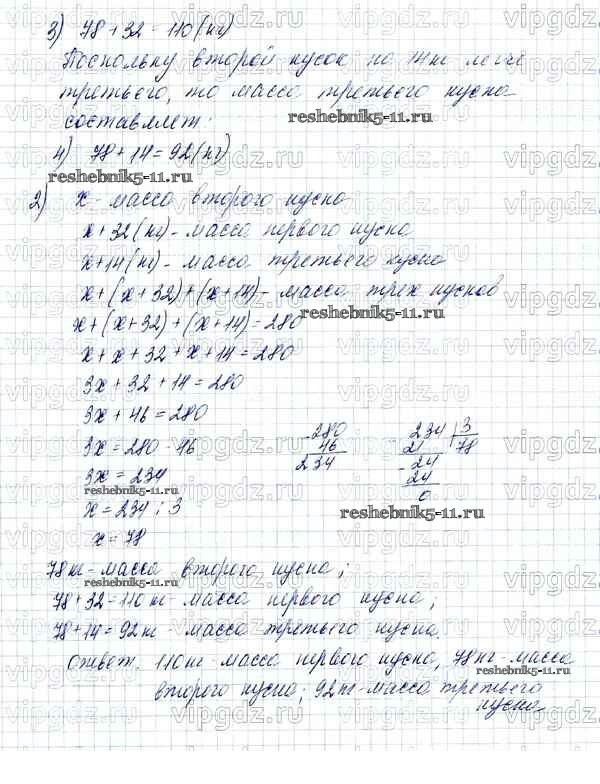 3) 78+32=110(кг)
Поскольку второй кусок на 14кг легче
третьего, то масса третьего куска
составляет:
reshebnik5-11.ru
4) 78+14=92(кг)
reshebnik5-11.ru
2) x - масса второго куска
x+32(кг) - масса первого куска
x+14(кг) - масса третьего куска
x+(x+32)+(x+14) - масса трех кусков
reshebnik5-11.ru
x+(x+32)+(x+14)=280
x+x+32+x+14=280
3x+32+14=280
3x+46=280
3x=280-46
3x=234
reshebnik5-11.ru
x=234:3
x=78
-280
46
234
-234 3
21 78
-24
24
0
reshebnik5-11.ru
78кг - масса второго куска;
reshebnik5-11.ru
78+32=110кг - масса первого куска;
78+14=92кг - масса третьего куска.
Ответ. 110кг - масса первого куска, 78кг - масса
reshebnik5-11.ru
второго куска; 92кг - масса третьего
куска
vipgdz.ru